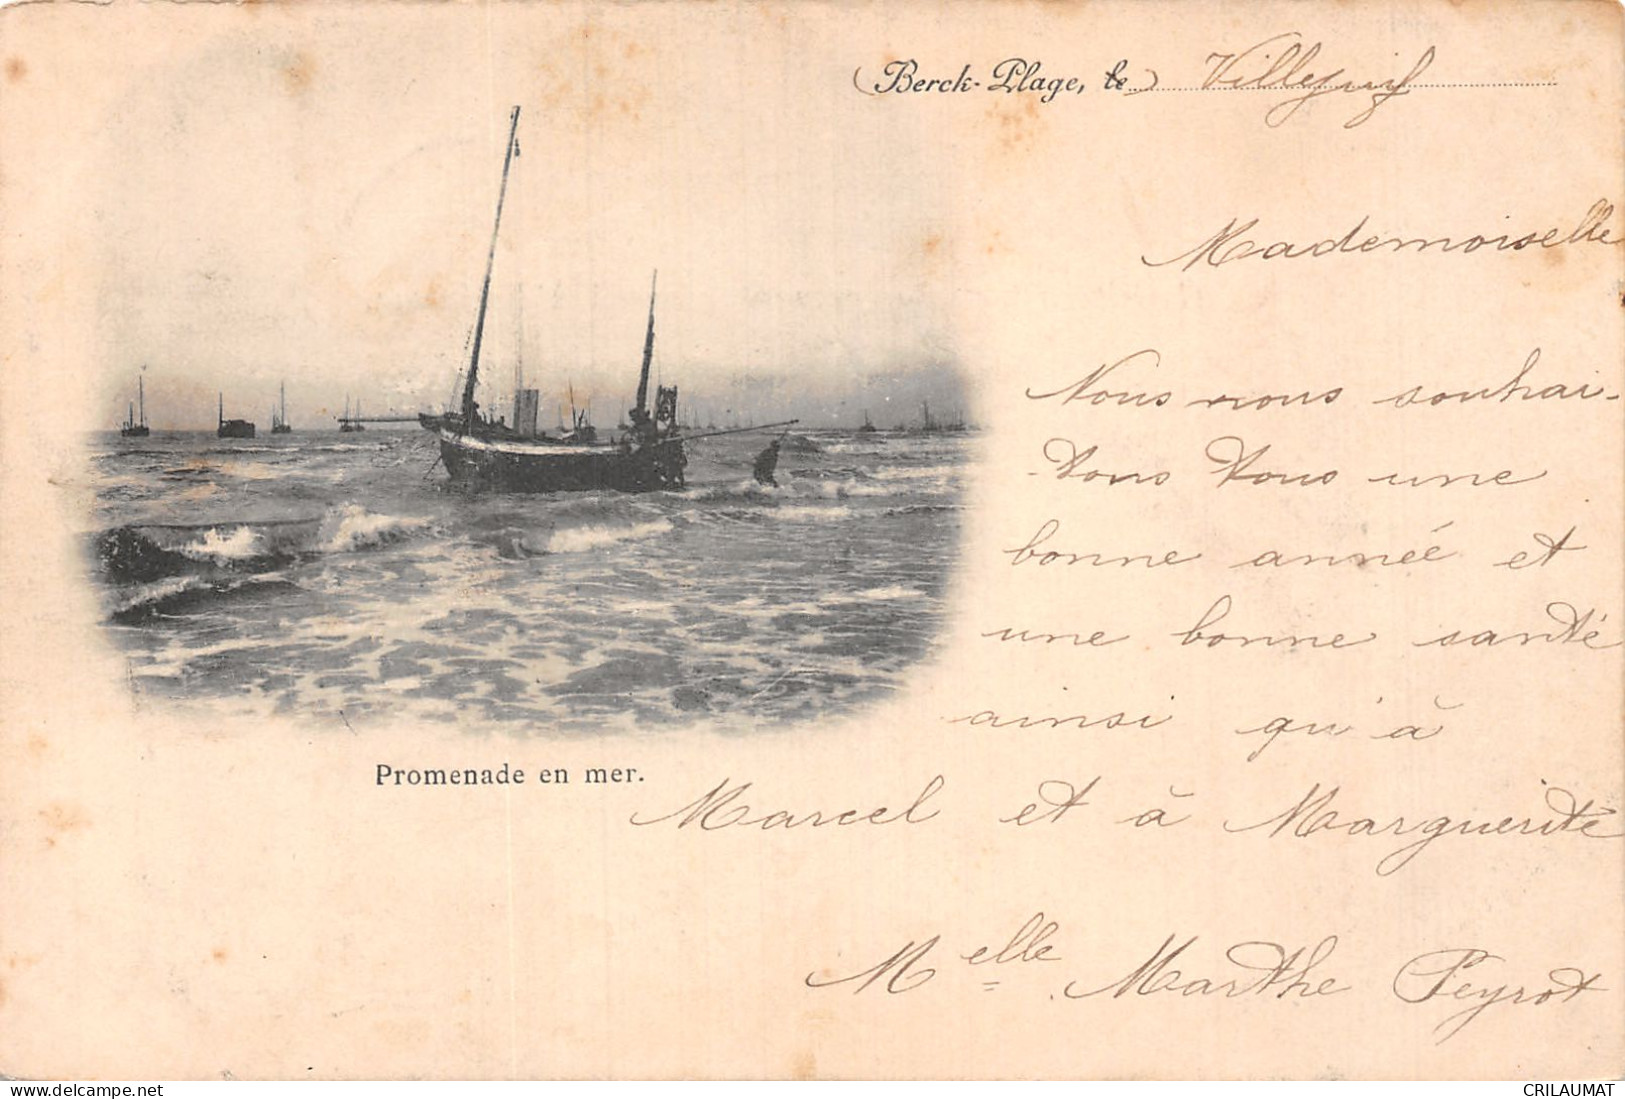 (Berck-Plage, le) Villejuif
Mademoiselle
Nous nous souhai-
-tons tous une
bonne année et
une bonne santé
ainsi qu'à
Marcel et à Marguerite
Melle Marthe Peyrot
Promenade en mer.
www.delcampe.net
CRILAUMAT